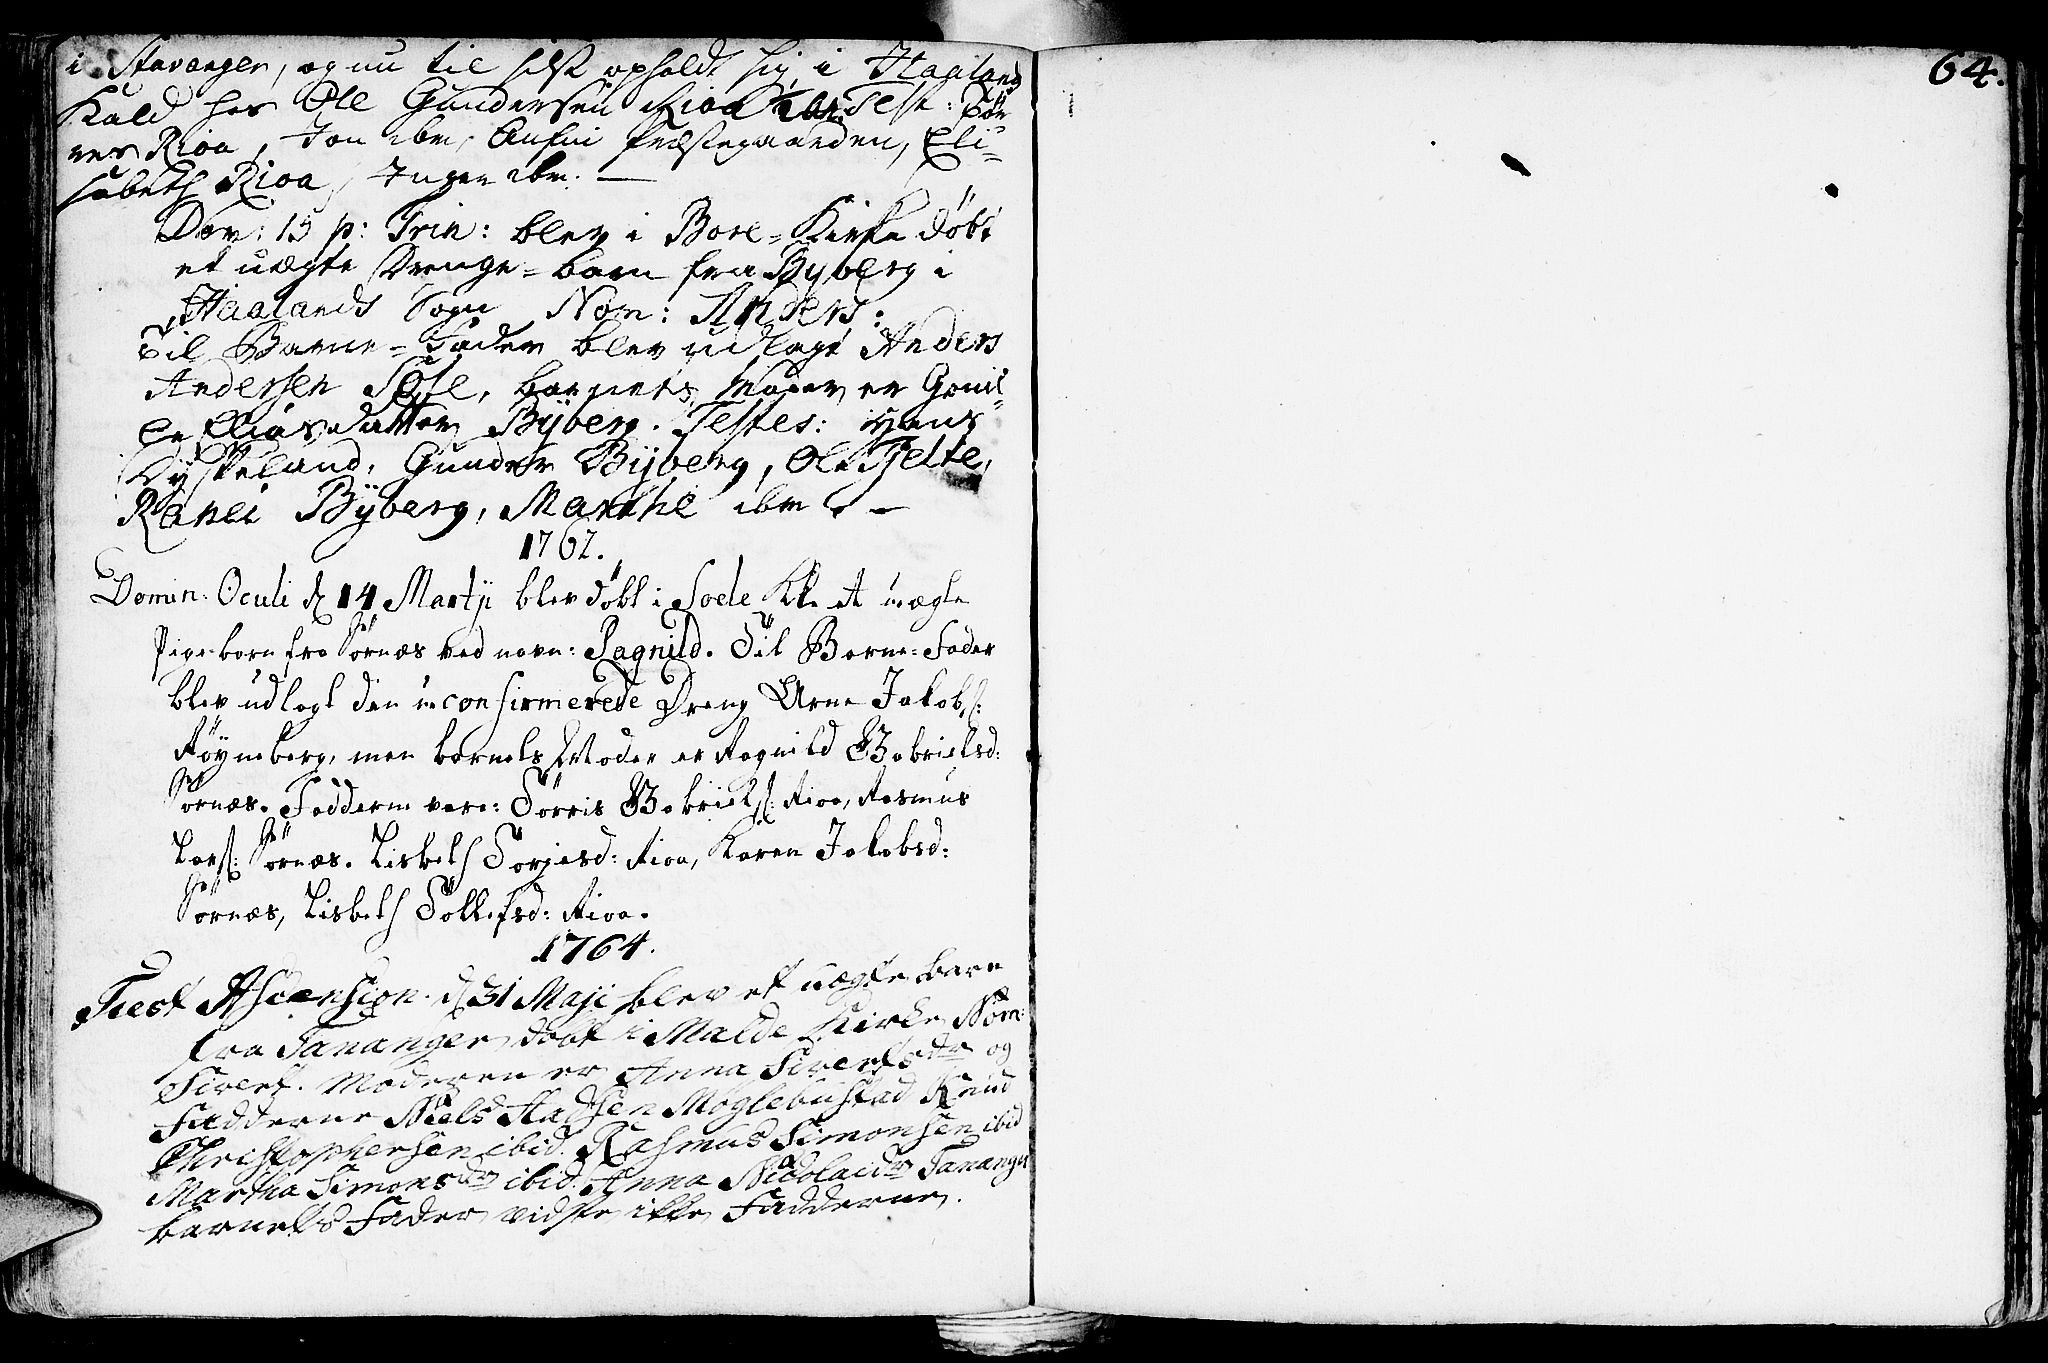 i Stavanger, og nu til sidst opholdt sig i Haaland
Kald hos Ole Gundersen Rioa Test: Tör
res Rioa, Jon ibm, Anfin Præstegaarden, Eli=
sabeth Rioa, Inger ibm. —
Dom: 15 p: Trin: blev i Bore=Kirke döbt
et uægte Drenge=barn fra Byberg i
Haalands Sogn Nom: Anders:
Til Barne=Fader blev udlagt Anders
Andersen Sole, barnets Moder er Gonil=
de Eliasdatter Bÿberg. Testes: Hans
Dyskeland, Gunder Bÿberg, Ole Tjelte,
Ranei Bÿberg, Marthe ibm. —
1762.
Domin: Oculi d 14 Martji blev döbt i Soele Kke et uægte
Pigebarn fra Sörnæs ved navn: Ragnild. Til Barne=Fader
blev udlagt den inconfirmerede Dreng Arne Jakobs:
Röyneberg, men barnets Moder er Ragnild Gabrielsd:
Sörnæs. Fadderne vare: Törris Gabriels: Rioa, Rasmus
Lars: Sörnæs. Lisbeth Torjesd: Rioa, Karen Jakobsd:
Sörnæs, Lisbeth Tollefsd: Rioa.
1764.
Fest Ascension. d 31 Maji blev et uægte barn
fra Tananger döbt i Malde Kirke Nom:
Sivert. Moderen er Anna Sivertsdr og
Fadderne Niels Madsen Möglebustad Knud
Christophersen ibid. Rasmus Simonsen ibid
Martha Simonsdr ibid. Anna Nicolaidr Tananger
barnets Fader vidste ikke Fadderne.
64.